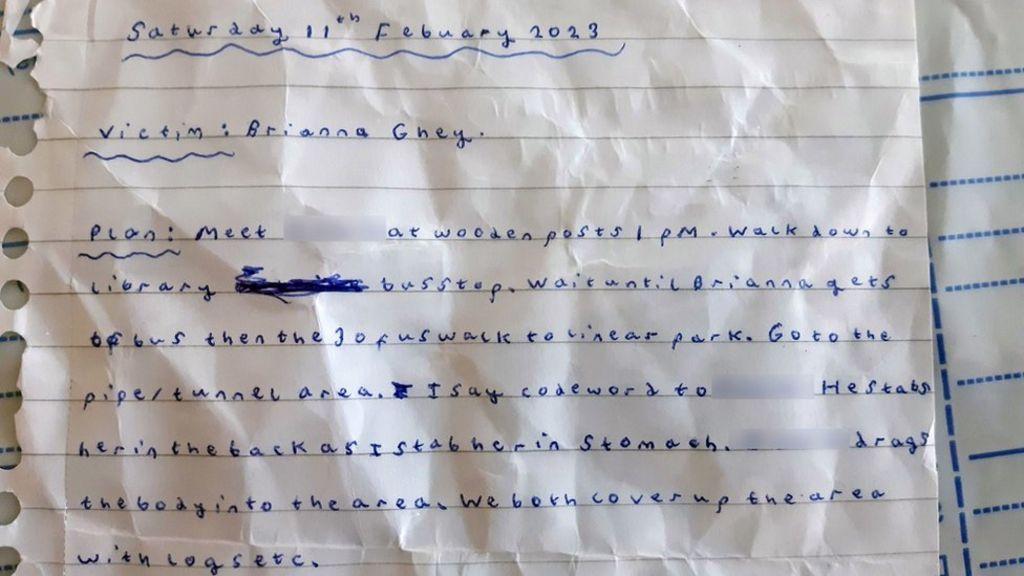 Saturday 11th Febuary 2023
Victim: Brianna Ghey.
Plan: Meet at wooden posts 1 pm. Walk down to
library bus stop. Wait until Brianna gets
of bus then the 3 of us walk to linear park. Go to the
pipe/tunnel area. I say code word to He stabs
her in the back as I stab her in stomach. drags
the body into the area. We both cover up the area
with logs etc.